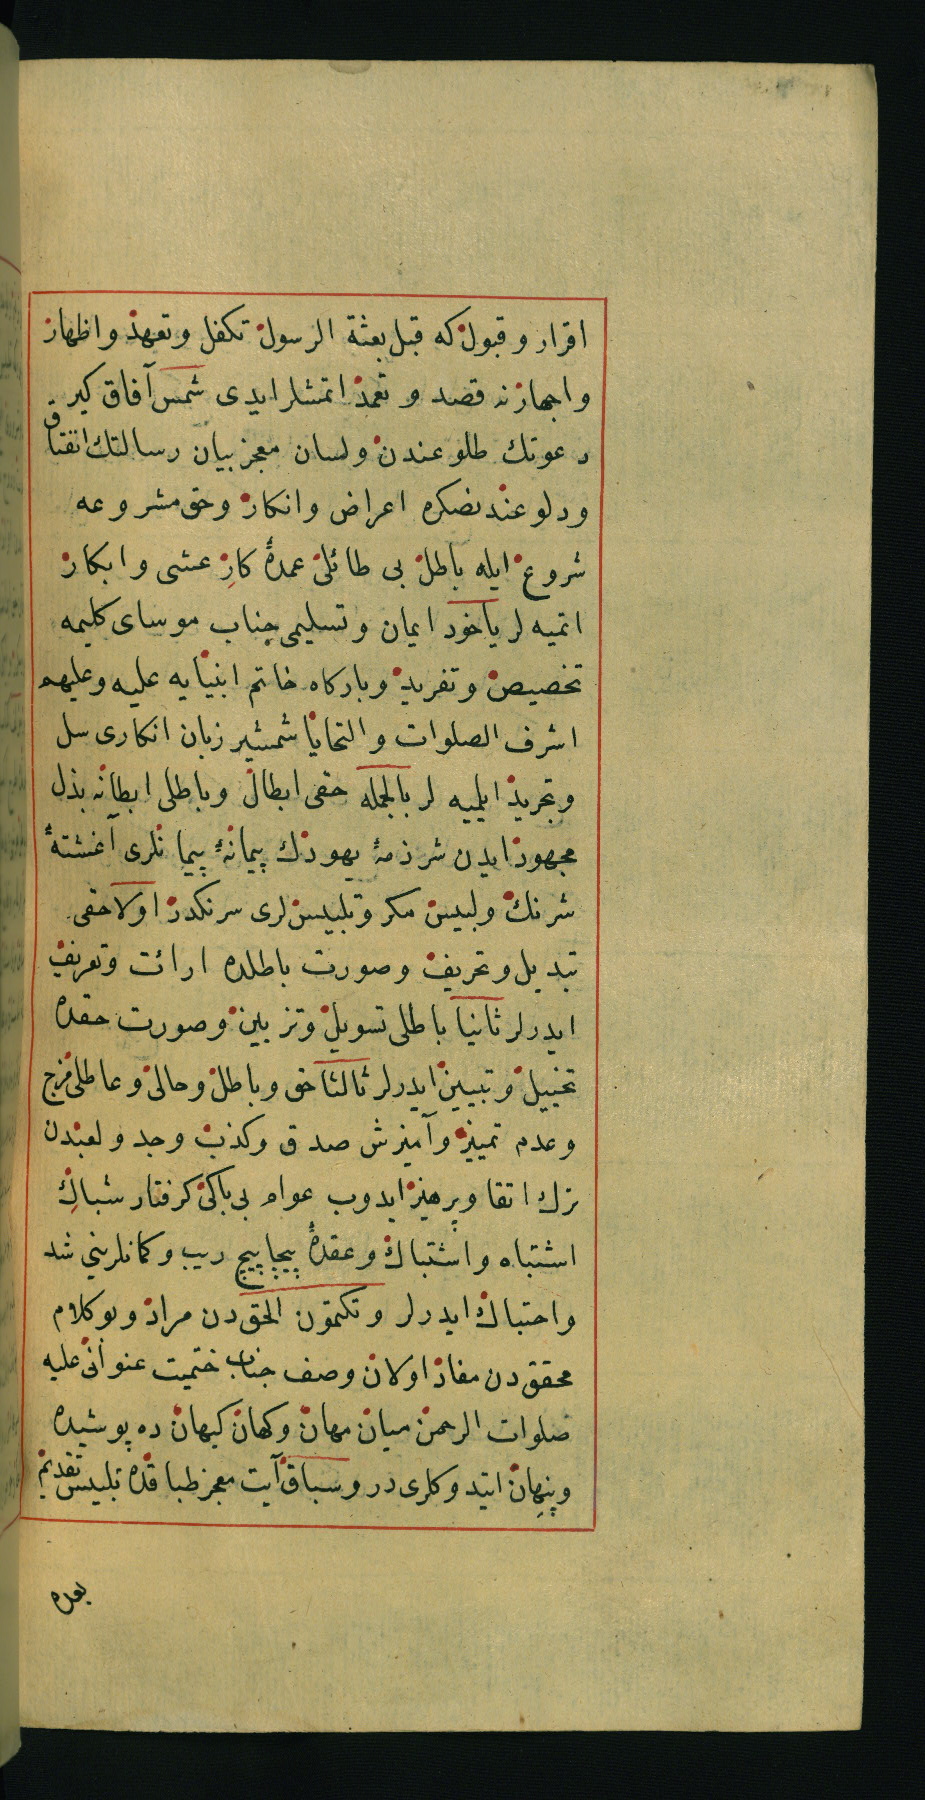 اقرار و قبول كه قبل بعثة الرسول تكفل و تعهد و اظهار
و اجهارنه قصد و تعمد اتمشلر ايدى شمس آفاق كير
دعوتك طلوعندن و لسان معجز بيان رسالتك انفتاق
و دلوعندنصكره اعراض و انكار و حق مشروعه
شروع ايله باطل بى طائلى عمدهٔ كار عشى و ابكار
اتميه لر ياخود ايمان و تسليمى جناب موساى كليمه
تخصيص و تفريد و باركاه خاتم انبيايه عليه و عليهم
اشرف الصلوات و التحايا شمشير زبان انكارى سل
و تجريد ايلميه لر بالجمله حقى ابطال و باطلى ابطانه بذل
مجهود ايدن شرذمهٔ يهودك پيمانهٔ پيمانلرى آغشتهٔ
شرنك و لبيس مكر و تلبيس لرى سرنكدر اولا حقى
تبديل و تحريف و صورت باطلده ارائت و تعريف
ايدرلر ثانيا باطلى تسويل و تزيين و صورت حقده
تخييل و تبيين ايدرلر ثالثا حق و باطل و حالى و عاطلى مزج
و عدم تمييز و آميزش صدق و كذب و جد و لعبدن
ترك اتقا و پرهيز ايدوب عوام بى باكى كرفتار شباك
اشتباه و اشتباك و عقدهٔ پيچاپيچ ريب و كمانلرينى شد
و احتباك ايدرلر و تكتمون الحق دن مراد و بو كلام
محقق دن مفاد اولان وصف جناب ختميت عنوانى عليه
صلوات الرحمن ميان مهان و كهان كيهان ده پوشيده
و پنهان ايتدوكلرى در و سباق آيت معجز طباقده تلبيس تقديم
بعده